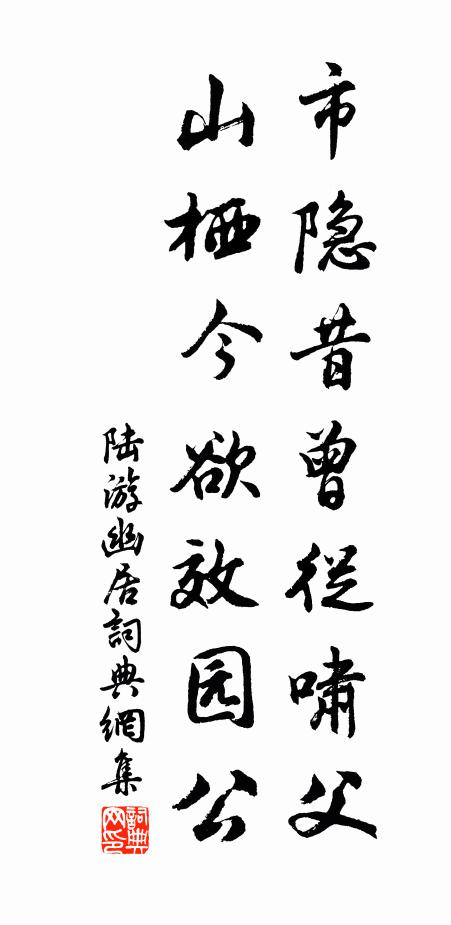 市隐昔曾從啸父
山栖今欲效园公
陆游幽居詞典網集
詞典网印